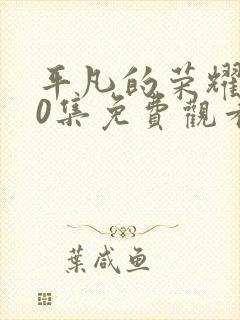 平凡的荣耀
0集免費觀看
葉咸鱼